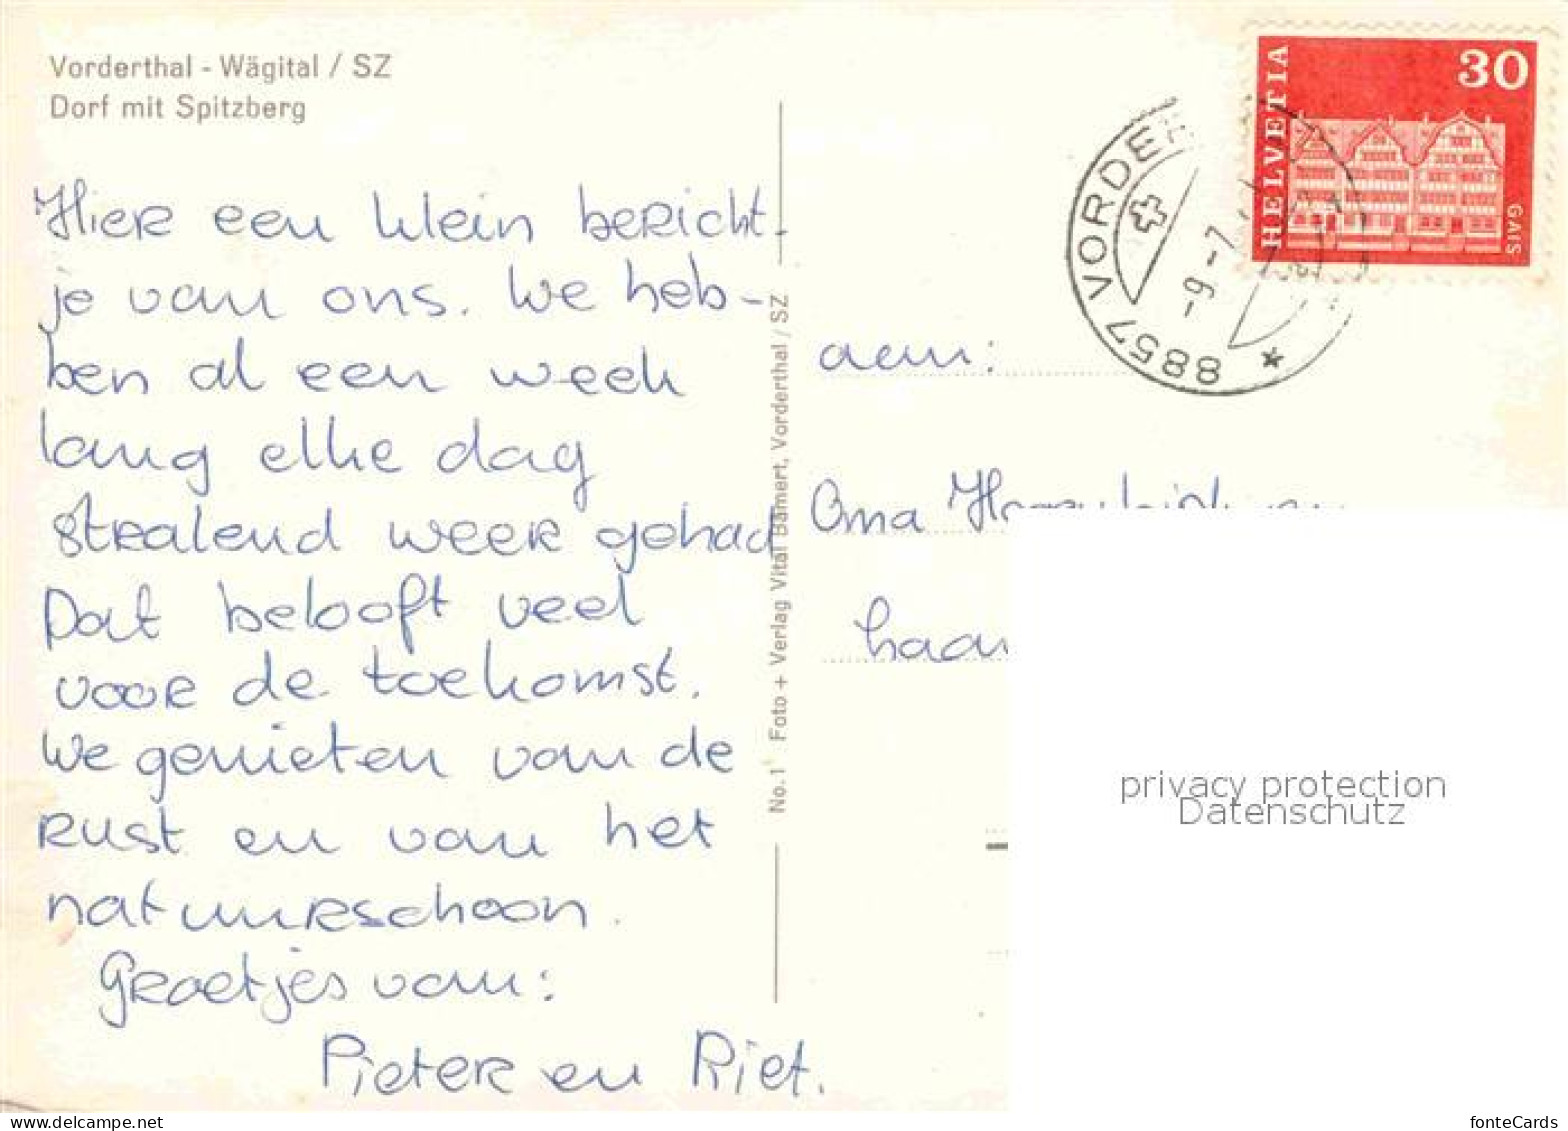 Vorderthal - Wägital / SZ
Dorf mit Spitzberg
Hier een klein bericht-
je van ons. We heb-
ben al een week
lang elke dag
stralend weer gehad
Dat belooft veel
voor de toekomst.
We genieten van de
rust en van het
natuurschoon.
Groetjes van:
Pieter en Riet.
No. 1 Foto + Verlag Vital Bamert, Vorderthal / SZ
HELVETIA
30
GAIS
8857 VORDER
aan:
Oma
privacy protection
Datenschutz
www.delcampe.net
fonteCards